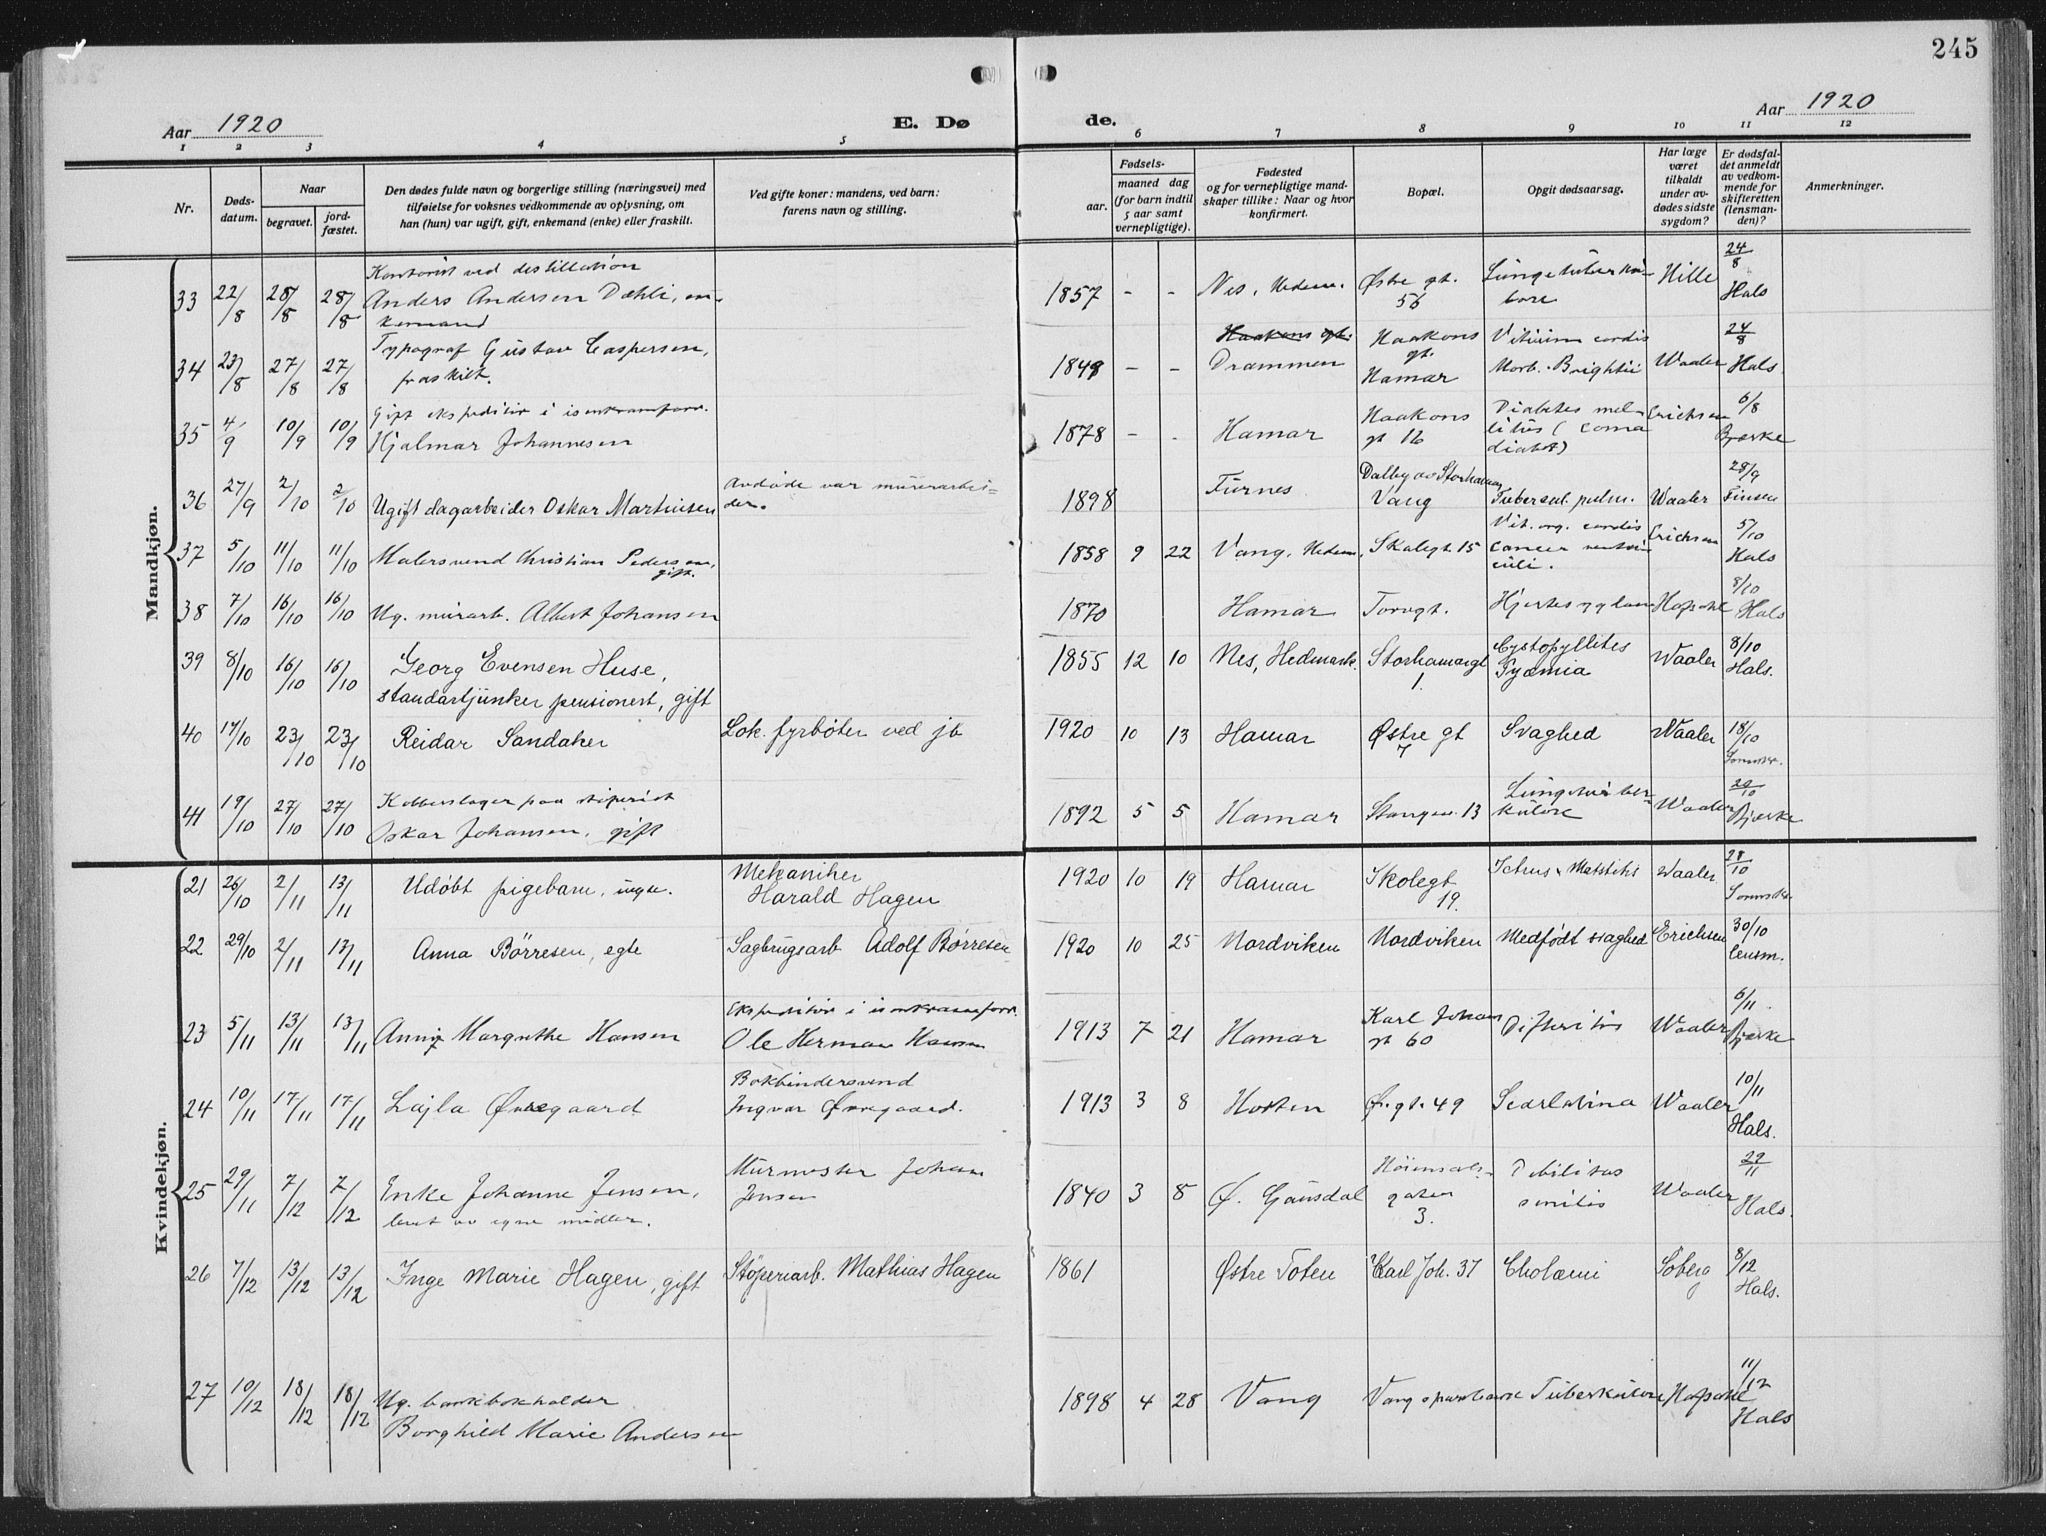 245
Aar 1920
E. Dø
de.
Aar 1920
1 2 3 4 5 6 7 8 9 10 11 12
Nr.
Døds-
datum.
Naar
begravet.
jord-
fæstet.
Den dødes fulde navn og borgerlige stilling (næringsvei) med
tilføielse for voksnes vedkommende av oplysning, om
han (hun) var ugift, gift, enkemand (enke) eller fraskilt.
Ved gifte koner: mandens, ved barn:
farens navn og stilling.
Fødsels-
aar.
maaned dag
(for barn indtil
5 aar samt
vernepligtige).
Fødested
og for vernepligtige mand-
skaper tillike: Naar og hvor
konfirmert.
Bopæl.
Opgit dødsaarsag.
Har læge
været
tilkaldt
under av-
dødes sidste
sygdom?
Er dødsfal-
det anmeldt
av vedkom-
mende for
skifteretten
(lensman-
den)?
Anmerkninger.
Mandkjøn.
Kontorist ved destillation
33 22/8 28/8 28/8 Anders Andersen Dæhli, en-
kemand
1857 - - Nes, Hedem. Østre gt. 56 Lungetuberku-
lose Hille 24/8 Hals
34 23/8 27/8 27/8 Typograf Gustav Caspersen,
fraskilt.
1849 - - Haakons gt. Drammen Haakons
gt.
Hamar Vitium cordis
Morb. Brightii Waaler 24/8 Hals
35 4/9 10/9 10/9 Gift ekspeditør i isenkramforr.
Hjalmar Johannesen
1878 - - Hamar Haakons
gt 16 Diabetes mel-
litus (coma
diabet) Erichsen 6/8 Bjærke
36 27/9 2/10 2/10 Ugift dagarbeider Oskar Martinsen Avdøde var murerarbei-
der.
1898 Furnes Dalby av Storhamar
Vang Tubercul. pulm. Waaler 28/9 Finsen
37 5/10 11/10 11/10 Malersvend Christian Pedersen,
gift.
1858 9 22 Vang, Hedem. Skolegt. 15 Vit. org. cordis
cancer ventri
culi. Erichsen 5/10 Hals
38 7/10 16/10 16/10 Ug. murarb. Albert Johansen
1870 Hamar Torvgt. Hjertesygdom Hapahl 8/10 Hals
39 8/10 16/10 16/10 Georg Evensen Huse,
standartjunker pensionert, gift
1855 12 10 Nes, Hedmark. Storhamargt
1. Cystopyllites
Pyæmia Waaler 8/10 Hals.
40 17/10 23/10 23/10 Reidar Sandaker Lok. fyrbøter ved jb
1920 10 13 Hamar Østre gt
7 Svaghed Waaler 18/10
41 19/10 27/10 27/10 Kobberslager paa støperiet
Oskar Johansen, gift
1892 5 5 Hamar Stangev. 13 Lungetuber-
kulose Waaler 20/10 Bjærke
Kvindekjøn.
21 26/10 2/11 13/11 Udøbt pigebarn, Mekaniker
Harald Hagen
1920 10 19 Hamar Skolegt.
19. Ictrus Waaler 28/10
22 29/10 2/11 13/11 Anna Børresen, egte Sagbrugsarb Adolf Børresen
1920 10 25 Nordviken Nordviken Medfödt svaghed Erichsen 30/10 lensm.
23 5/11 13/11 13/11 Anny Margrethe Hansen Ekspeditør i isenkramforr.
Ole Herman Hansen
1913 7 21 Hamar Karl Johans
gt 60 Difteritis Waaler 6/11 Bjærke
24 10/11 17/11 17/11 Lajla Øvregaard Bokbindersvend
Ingvar Øvregaard.
1913 3 8 Horten Ø. gt. 49 Scarlatina Waaler 10/11 Hals.
25 29/11 7/12 7/12 Enke Johanne Jensen,
levet av egne midler. Murmester Johan
Jensen
1840 3 8 Ø. Gausdal Høiensals-
gaten
3. Debilitas
senilis Waaler 29/11 Hals.
26 7/12 13/12 13/12 Inge Marie Hagen, gift Støperiarb. Mathias Hagen
1861 Østre Toten Karl Joh. 37 Cholæmi Soberg 8/12 Hals.
27 10/12 18/12 18/12 Ug. bankbokholder
Borghild Marie Andersen
1898 4 28 Vang Vang sparebank Tuberkulose Hapahl 11/12 Hals